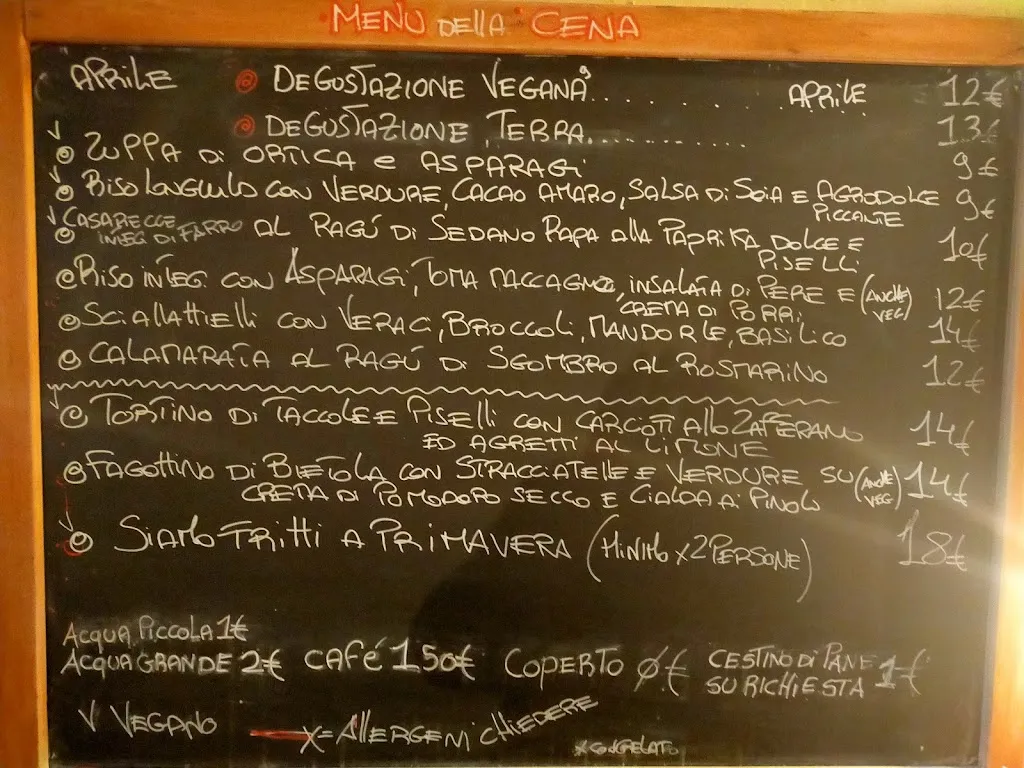 MENU DELLA CENA
APRILE DEGUSTAZIONE VEGANA......... APRILE 12€
DEGUSTAZIONE TERRA............ 13€
V ZUPPA DI ORTICA e ASPARAGI 9€
V RISO LONG CON VERDURE, CACAO AMARO, SALSA DI SOIA E AGRODOLCE 9€
PICCANTE
V CASARECCE INTEG. DI FARRO AL RAGÚ DI SEDANO RAPA ALLA PAPRIKA DOLCE E 10€
PISELLI
RISO INTEG. CON ASPARAGI, TOMA MACCAGNO, INSALATA DI PERE E (ANCHE VEG) 12€
CREMA DI PORRI
SCIALLATTIELLI CON VERACI, BROCCOLI, MANDORLE, BASILICO 14€
CALAMARATA AL RAGÚ DI SGOMBRO AL ROSMARINO 12€
V TORTINO DI TACCOLE E PISELLI CON CARCIOFI ALLO ZAFFERANO 14€
ED AGRETTI AL LIMONE
FAGOTTINO DI BIETOLA CON STRACCIATELLE E VERDURE SU (ANCHE VEG) 14€
CREMA DI POMODORO SECCO E CIALDA AI PINOLI
V SIAMO FRITTI A PRIMAVERA (MINIMO X 2 PERSONE) 18€
ACQUA PICCOLA 1€
ACQUA GRANDE 2€ CAFé 1.50€ COPERTO Ø€ CESTINO DI PANE 1€
SU RICHIESTA
V VEGANO X=ALLERGENI CHIEDERE
X CONGELATO